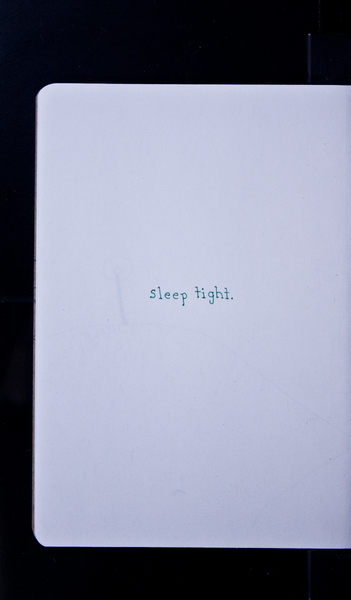 sleep tight.